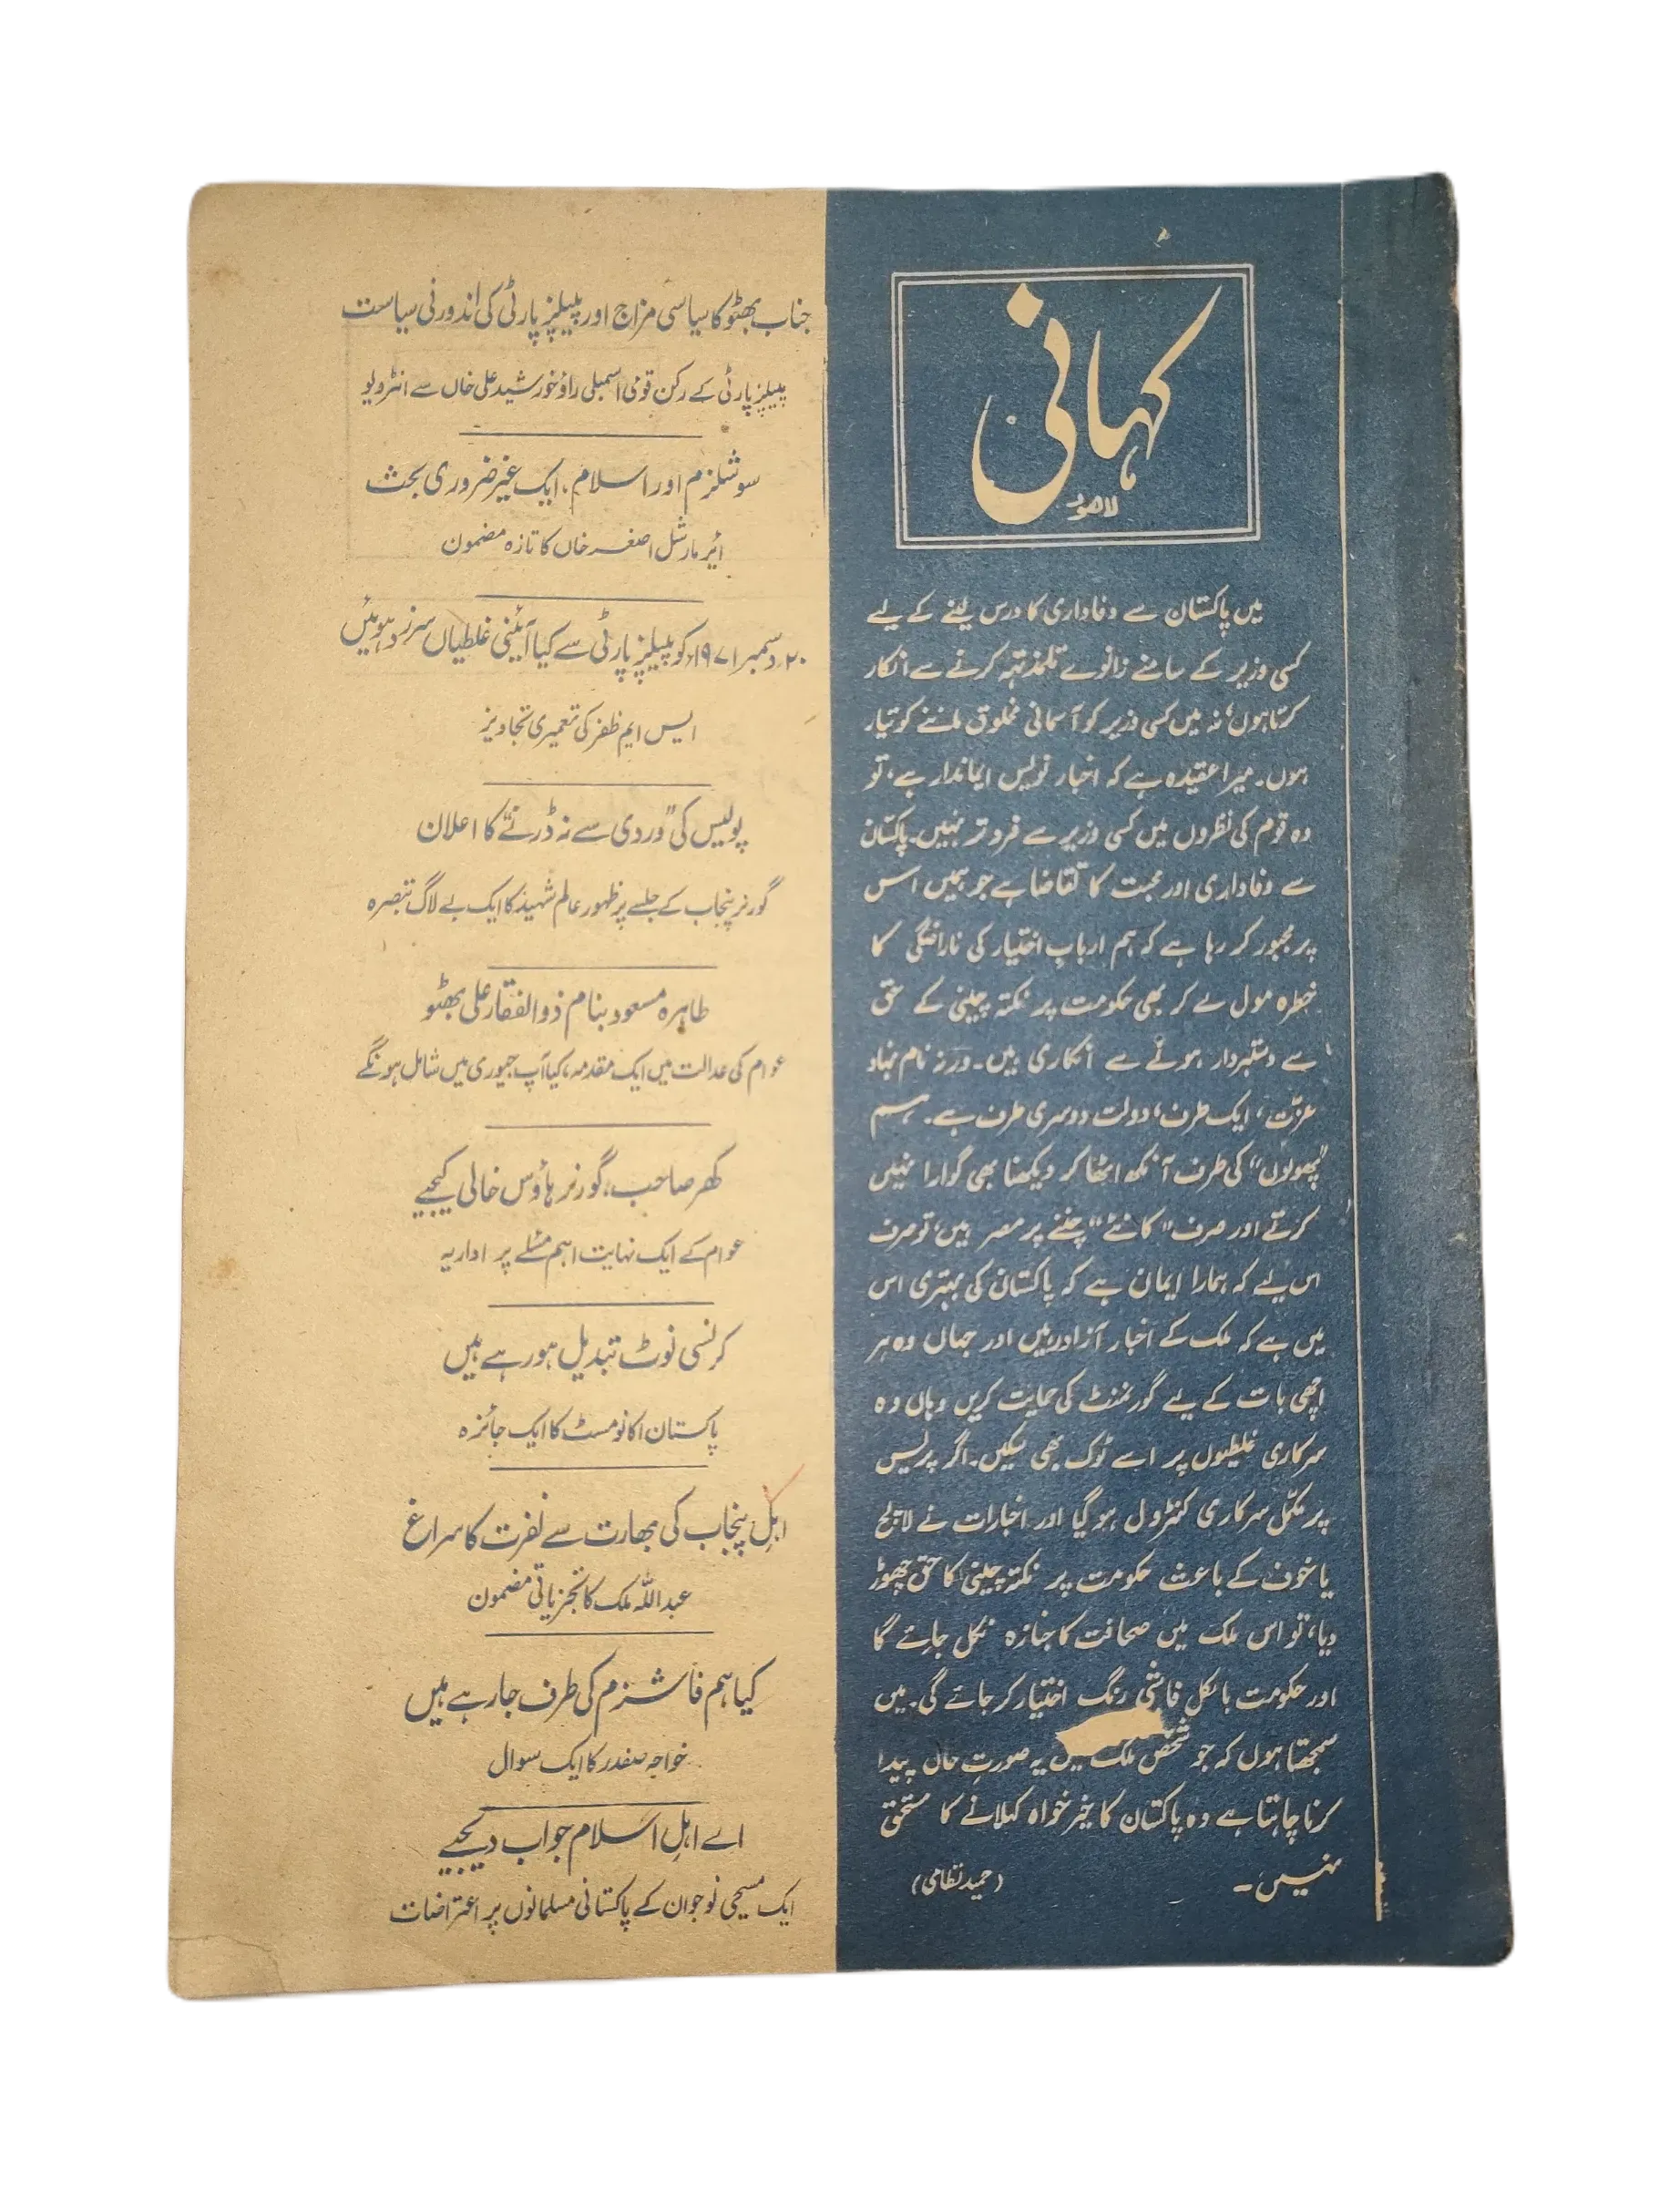 کہانی
لاہور
میں پاکستان سے وفاداری کا درس لینے کے لیے
کسی وزیر کے سامنے زانوے تلمذ تہہ کرنے سے انکار
کرتا ہوں، نہ میں کسی وزیر کو آسمانی مخلوق ماننے کو تیار
ہوں۔ میرا عقیدہ ہے کہ اخبار نویس ایماندار ہے، تو
وہ قوم کی نظروں میں کسی وزیر سے فروتر نہیں۔ پاکستان
سے وفاداری اور محبت کا تقاضا ہے جو ہمیں اس
پر مجبور کر رہا ہے کہ ہم اربابِ اختیار کی ناراضگی کا
خطرہ مول لے کر بھی حکومت پر نکتہ چینی کے حق
سے دستبردار ہونے سے انکاری ہیں۔ ورنہ نام نہاد
عزّت، ایک طرف، دولت دوسری طرف ہے۔ ہم
"پھولوں" کی طرف آنکھ اٹھا کر دیکھنا بھی گوارا نہیں
کرتے اور صرف "کانٹے" چننے پر مصر ہیں، تو صرف
اس لیے کہ ہمارا ایمان ہے کہ پاکستان کی بہتری اس
میں ہے کہ ملک کے اخبار آزاد رہیں اور جہاں وہ ہر
اچھی بات کے لیے گورنمنٹ کی حمایت کریں وہاں وہ
سرکاری غلطیوں پر اسے ٹوک بھی سکیں۔ اگر پریس
پر مکمّل سرکاری کنٹرول ہو گیا اور اخبارات نے لالچ
یا خوف کے باعث حکومت پر نکتہ چینی کا حق چھوڑ
دیا، تو اس ملک میں صحافت کا جنازہ نکل جائے گا
اور حکومت بالکل فاشی رنگ اختیار کر جائے گی۔ میں
سمجھتا ہوں کہ جو شخص ملک میں یہ صورتِ حال پیدا
کرنا چاہتا ہے وہ پاکستان کا خیر خواہ کہلانے کا مستحق
نہیں۔ (حمید نظامی)
جناب بھٹو کا سیاسی مزاج اور پیپلز پارٹی کی اندورنی سیاست
پیپلز پارٹی کے رکن قومی اسمبلی راؤ خورشید علی خاں سے انٹرویو
سوشلزم اور اسلام، ایک غیر ضروری بحث
ایر مارشل اصغر خاں کا تازہ مضمون
۲۰ دسمبر ۱۹۷۱ء کو پیپلز پارٹی سے کیا آئینی غلطیاں سرزد ہوئیں
ایس ایم ظفر کی تعمیری تجاویز
پولیس کی "وردی سے نہ ڈرنے" کا اعلان
گورنر پنجاب کے جلسے پر ظہور عالم شہید کا ایک بے لاگ تبصرہ
طاہرہ مسعود بنام ذوالفقار علی بھٹو
عوام کی عدالت میں ایک مقدمہ، کیا آپ جیوری میں شامل ہونگے
کھر صاحب، گورنر ہاؤس خالی کیجیے
عوام کے ایک نہایت اہم مسئلے پر اداریہ
کرنسی نوٹ تبدیل ہو رہے ہیں
پاکستان اکانومسٹ کا ایک جائزہ
اہلِ پنجاب کی بھارت سے نفرت کا سراغ
عبداللہ ملک کا تجزیاتی مضمون
کیا ہم فاشزم کی طرف جا رہے ہیں
خواجہ صفدر کا ایک سوال
اے اہلِ اسلام جواب دیجیے
ایک مسیحی نوجوان کے پاکستانی مسلمانوں پر اعتراضات